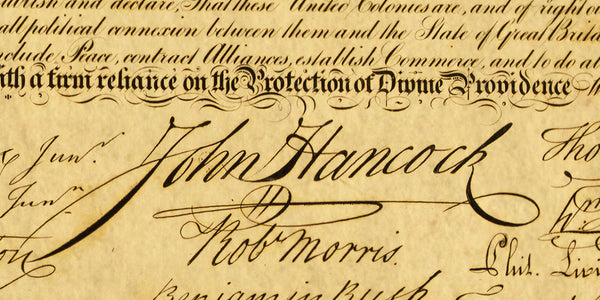 and declare, That these United Colonies are, and of right
all political connexion between them and the State of Great
Peace, contract Alliances, establish Commerce, and to do
a firm reliance on the Protection of Divine Providence
Junr. John Hancock
Junr.
Robt Morris.
Phil.
Benjamin Rush